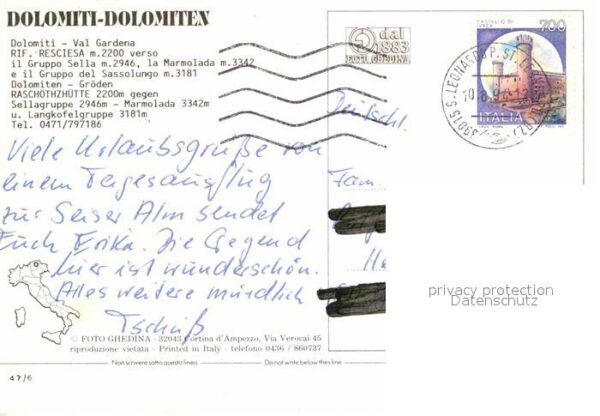 DOLOMITI-DOLOMITEN
Dolomiti - Val Gardena
RIF. RESCIESA m.2200 verso
il Gruppo Sella m.2946, la Marmolada m.3342
e il Gruppo del Sassolungo m.3181
Dolomiten - Gröden
RASCHOTZHÜTTE 2200m gegen
Sellagruppe 2946m - Marmolada 3342m
u. Langkofelgruppe 3181m
Tel. 0471/797186
Viele Urlaubsgrüße von
einem Tagesausflug
zur Seiser Alm sendet
Euch Erika. Die Gegend
hier ist wunderschön.
Alles weitere mündlich
Tschüß
© FOTO GHEDINA - 32043 Cortina d'Ampezzo, Via Verocai 45
riproduzione vietata - Printed in Italy - telefono 0436 / 860737
Non scrivere sotto questa linea
Do not write below this line
47/6
dal
1883
FOTO GHEDINA
CASTELLO DI
IVREA
700
ITALIA
39015 S. LEONARDO P.
Deutschl.
Fam.
privacy protection
Datenschutz